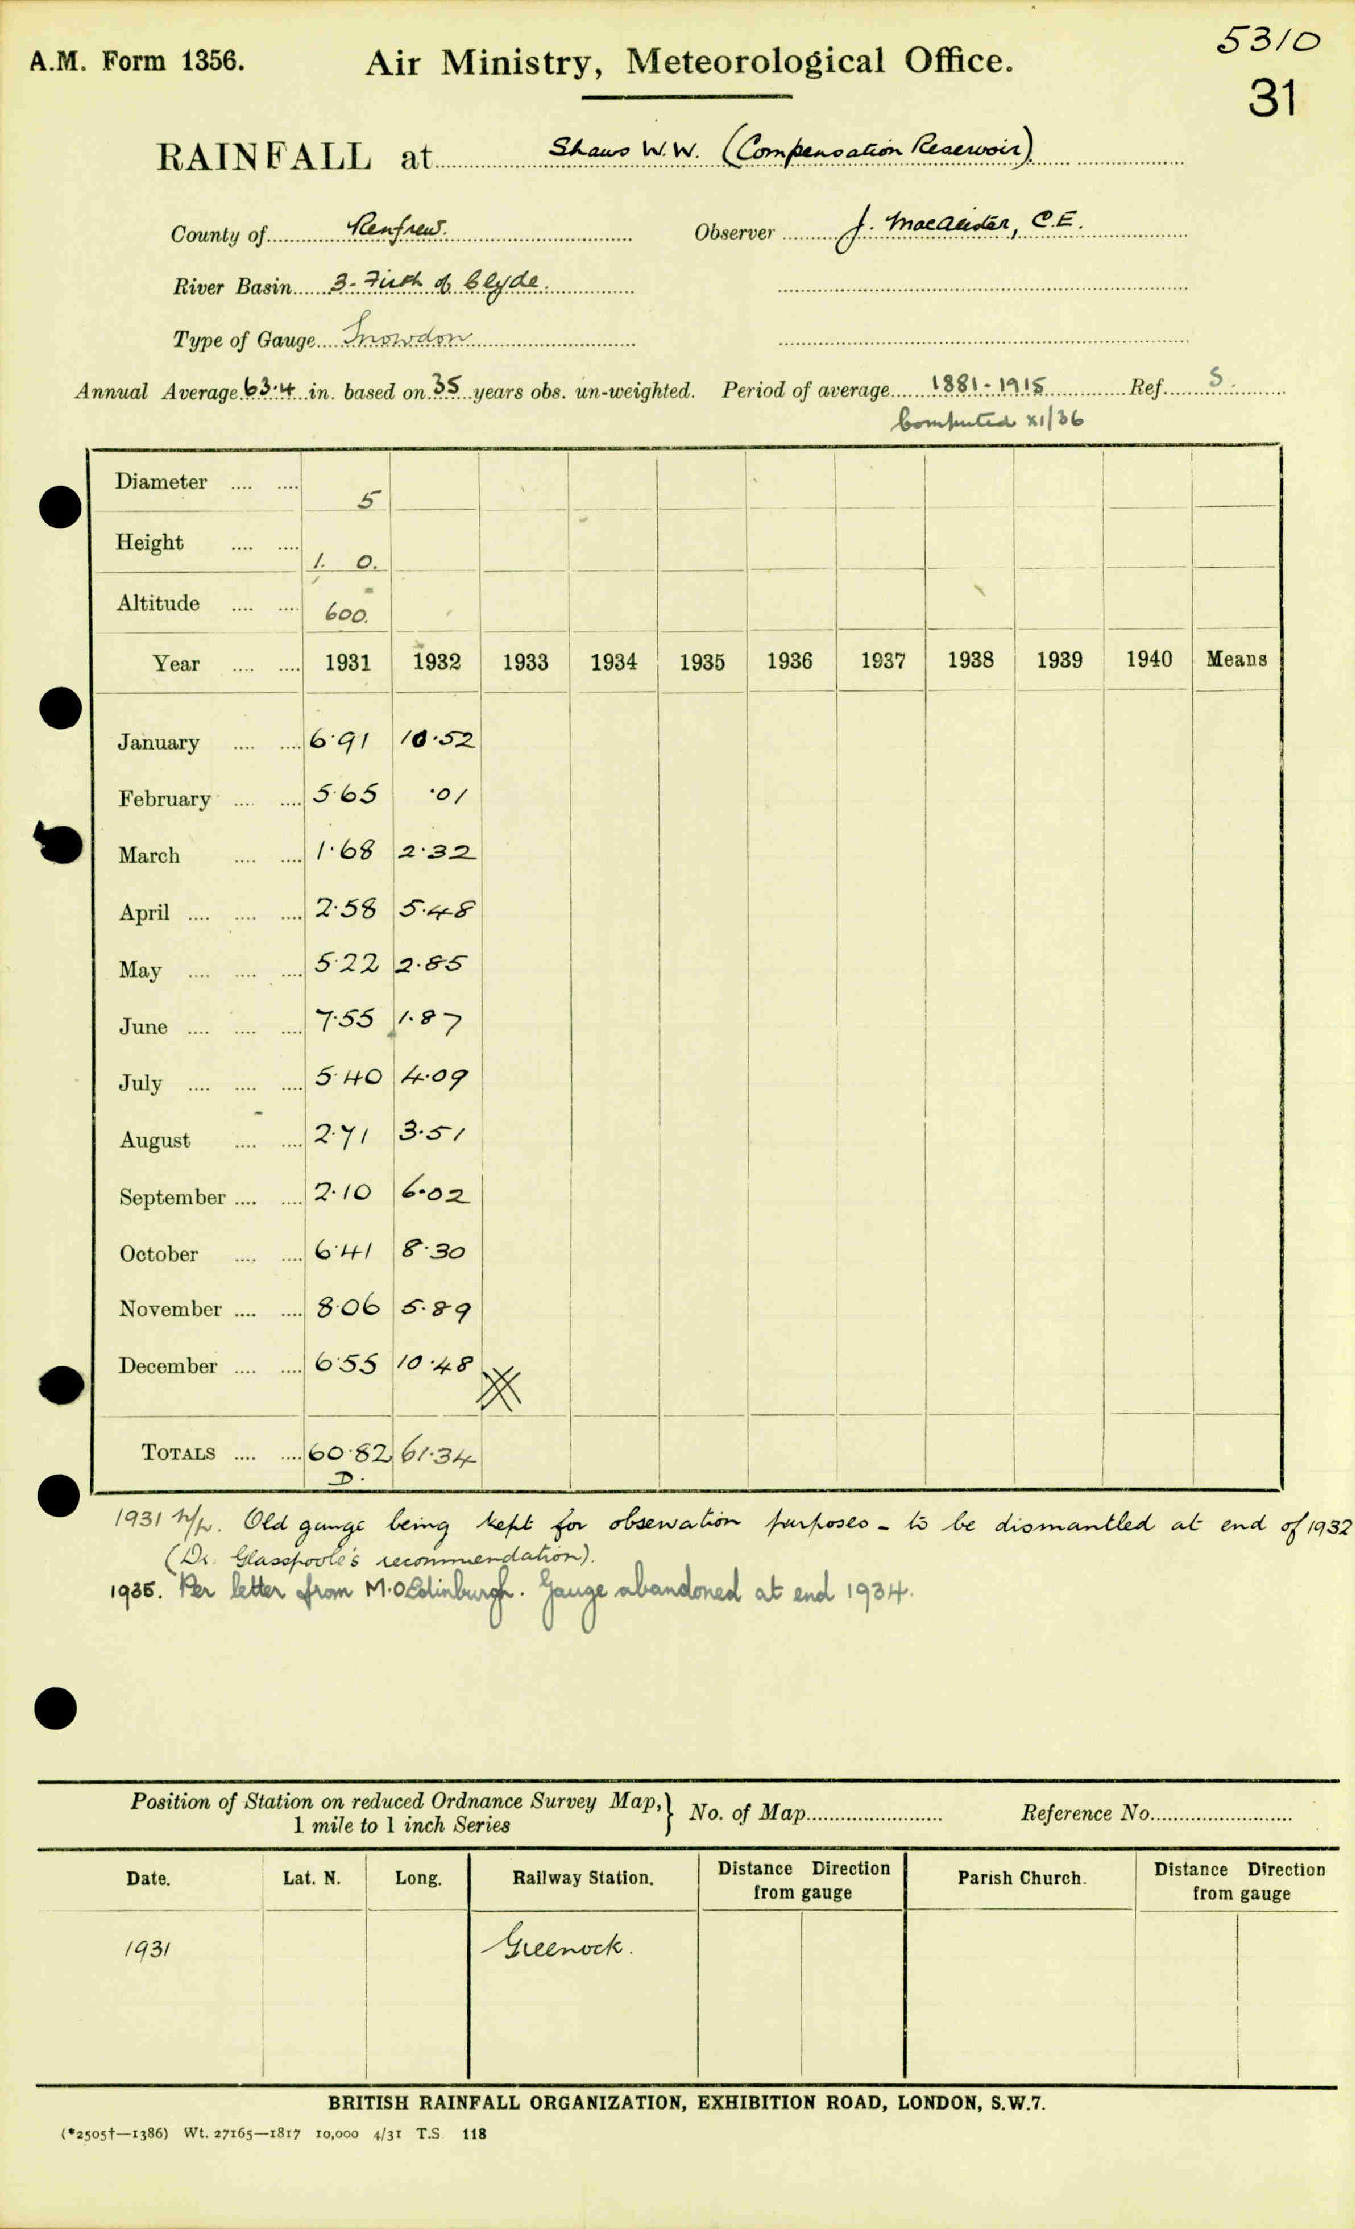 5310
A.M. Form 1356. Air Ministry, Meteorological Office.
31
RAINFALL at Shaws W.W. (Compensation Reservoir)
County of Renfrew. Observer J. MacAlister, C.E.
River Basin 3 - Firth of Clyde.
Type of Gauge Snowdon
Annual Average 63.4 in. based on 35 years obs. un-weighted. Period of average 1881-1915 Ref. S.
Computed XI/36
Diameter .... .... 5
Height .... .... 1. 0.
Altitude .... .... 600.
Year .... .... 1931 1932 1933 1934 1935 1936 1937 1938 1939 1940 Means
January .... .... 6.91 10.52
February .... .... 5.65 .01
March .... .... 1.68 2.32
April .... .... .... 2.58 5.48
May .... .... .... 5.22 2.85
June .... .... .... 7.55 1.87
July .... .... .... 5.40 4.09
August .... .... 2.71 3.51
September .... .... 2.10 6.02
October .... .... 6.41 8.30
November .... .... 8.06 5.89
December .... .... 6.55 10.48
TOTALS .... .... 60.82 61.34
D.
1931 Old gauge being kept for observation purposes - to be dismantled at end of 1932
(Dr. Glasspoole's recommendation).
1935. Per letter from M.O Edinburgh. Gauge abandoned at end 1934.
Position of Station on reduced Ordnance Survey Map, 1 mile to 1 inch Series } No. of Map Reference No.
Date. Lat. N. Long. Railway Station. Distance Direction from gauge Parish Church. Distance Direction from gauge
1931 Greenock.
BRITISH RAINFALL ORGANIZATION, EXHIBITION ROAD, LONDON, S.W.7.
(*2505†—1386) Wt. 27165—1817 10,000 4/31 T.S. 118